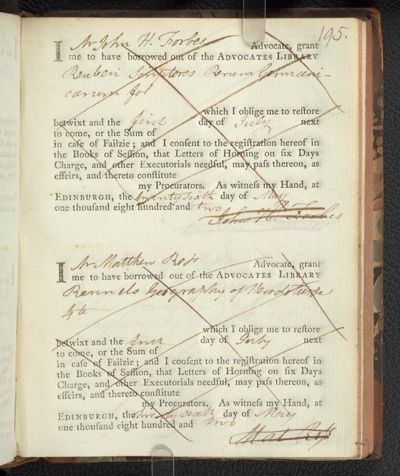 195.
I Mr John H. Forbes Advocate, grant
me to have borrowed out of the ADVOCATES LIBRARY
Reuberi Scriptores Rerum Germani-
carum fol
which I oblige me to reſtore
betwixt and the first day of July next
to come, or the Sum of
in caſe of Failzie; and I conſent to the regiſtration hereof in
the Books of Seſſion, that Letters of Horning on ſix Days
Charge, and other Executorials needful, may paſs thereon, as
effeirs, and thereto conſtitute
my Procurators. As witneſs my Hand, at
EDINBURGH, the twenty sixth day of May
one thouſand eight hundred and two
John H. Forbes
I Mr Matthew Ross Advocate, grant
me to have borrowed out of the ADVOCATES LIBRARY
Rennels Geography of Herodotus
4to
which I oblige me to reſtore
betwixt and the first day of July next
to come, or the Sum of
in caſe of Failzie; and I conſent to the regiſtration hereof in
the Books of Seſſion, that Letters of Horning on ſix Days
Charge, and other Executorials needful, may paſs thereon, as
effeirs, and thereto conſtitute
my Procurators. As witneſs my Hand, at
EDINBURGH, the twenty sixth day of May
one thouſand eight hundred and two
Mat. Ross